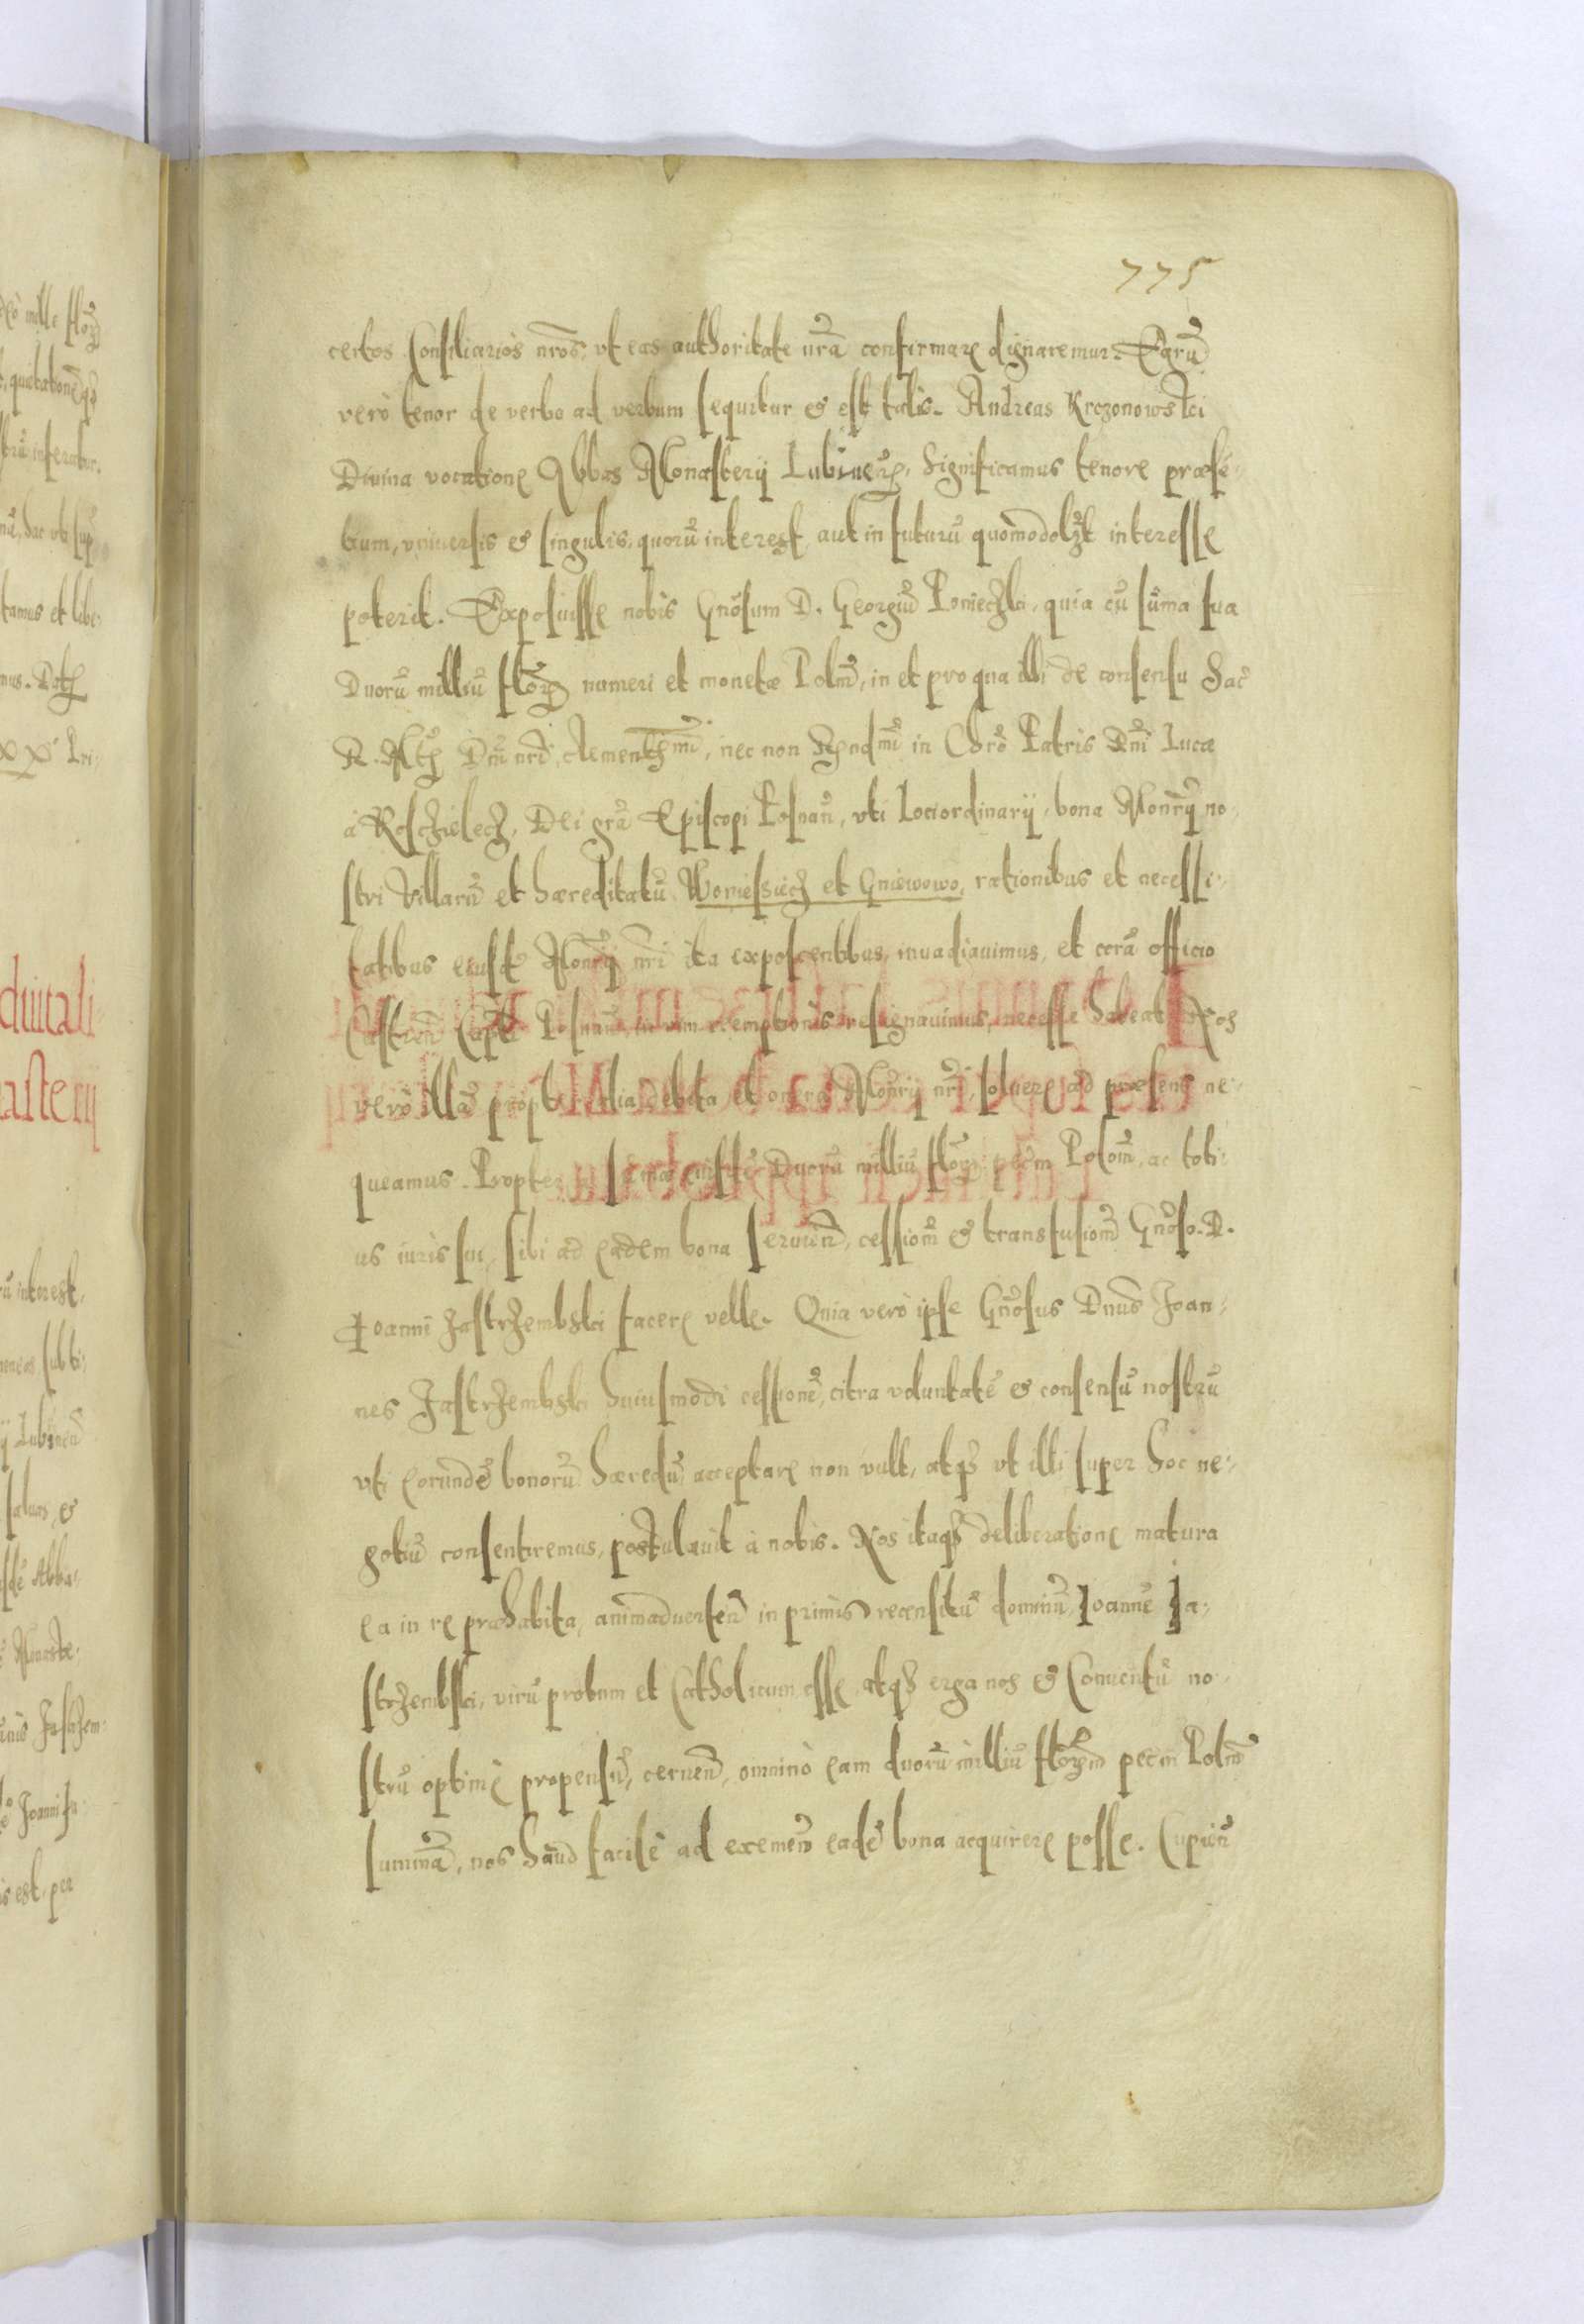 775
certos Consiliarios nros, vt eas authoritate nrã confirmare dignaremur. Earũ
verò tenor de verbo ad verbum sequitur et est talis. Andreas Krczonowski
Divina vocatione Abbas Monasterij Lubinen, Significamus tenore præsẽ-
tium, vniuersis et singulis, quorũ interest, aut in futurũ quomodolẓt interesse
poterit. Exposuisse nobis Gnõsum D. Georgiũ Ponieczki, quia cũ sũma sua
Duorũ milliũ flor numeri et monetæ Polm̃, in et pro qua illi de consensu Sac̃
R. Mtis Dñi nrĩ clementismĩ, nec non Rndmĩ in Chrõ Patris Dñi Lucæ
à Kosczielecz, Dei grã Episcopi Posnañ, vti Lociordinarij, bona Monrij no-
stri Villarũ et hæreditatũ Woniessiecz et Gniewowo, rationibus et necessi-
tatibus eiusdẽ Monrij nrĩ ita exposcentibus, inuadiauimus, et corã officio
Castreñ Capti Posnañ, in vim reemptionis resignauimus, necesse habeat Nos
verò illã propter alia debita et onera Monrij nrĩ, soluere ad præsens ne-
queamus. Propter sũmæ eiusdẽ Duorũ milliũ flor pecm̃ Polom̃, ac toti-
us iuris sui, sibi ad eadem bona seruieñ, cessionẽ et transfusionẽ Gnõso. D.
Joanni Jastrzembski facere velle. Quia verò ipse Gnõsus Dnus Joan-
nes Jastrzembski huiusmodi cessionẽ, citra voluntatẽ et consensũ nostrũ
vti eorundẽ bonorũ hæredũ acceptare non vult, atqз vt illi super hoc ne-
gotiũ consentiremus, postulauit à nobis. Nos itaqз deliberatione matura
ea in re præhabita, animaduerteñ in primis recensitũ dominũ Joannẽ Ja-
strzembski, virũ probum et Catholicum esse, atqз erga nos et Conuentũ no-
strũ optimè propensũ, cerneñ, omnino eam duorũ milliũ flor in pecm̃ Polm̃
summã, nos haud facilè ad eximeñ eadẽ bona acquirere posse. Cupieñ